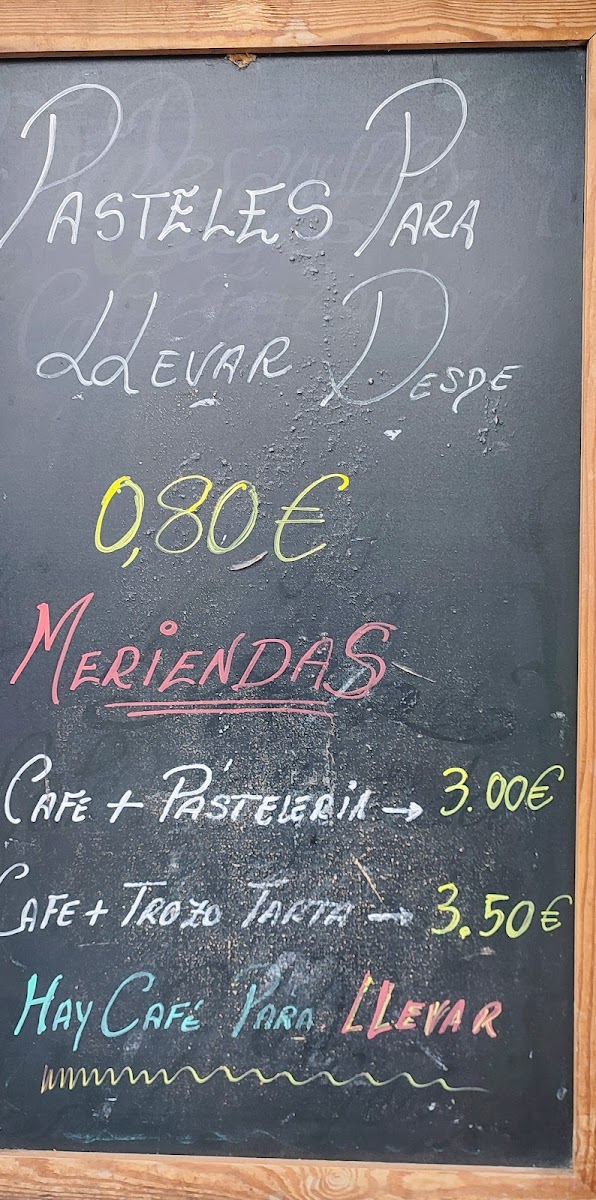 PASTELES PARA
LLEVAR DESDE
0,80€
MERIENDAS
CAFE + PASTELERIA → 3.00€
CAFE + TROZO TARTA → 3.50€
HAY CAFÉ PARA LLEVAR